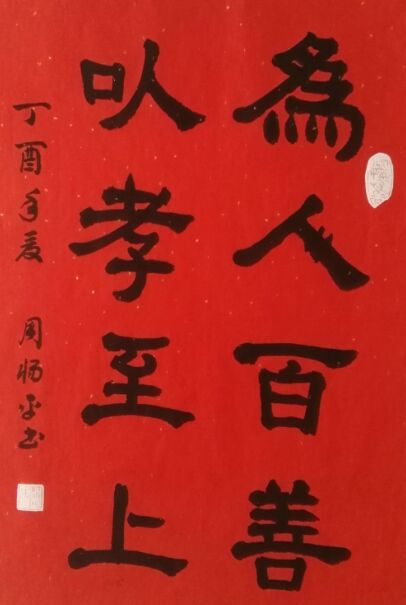 為人百善
以孝至上
丁酉年夏 周平书